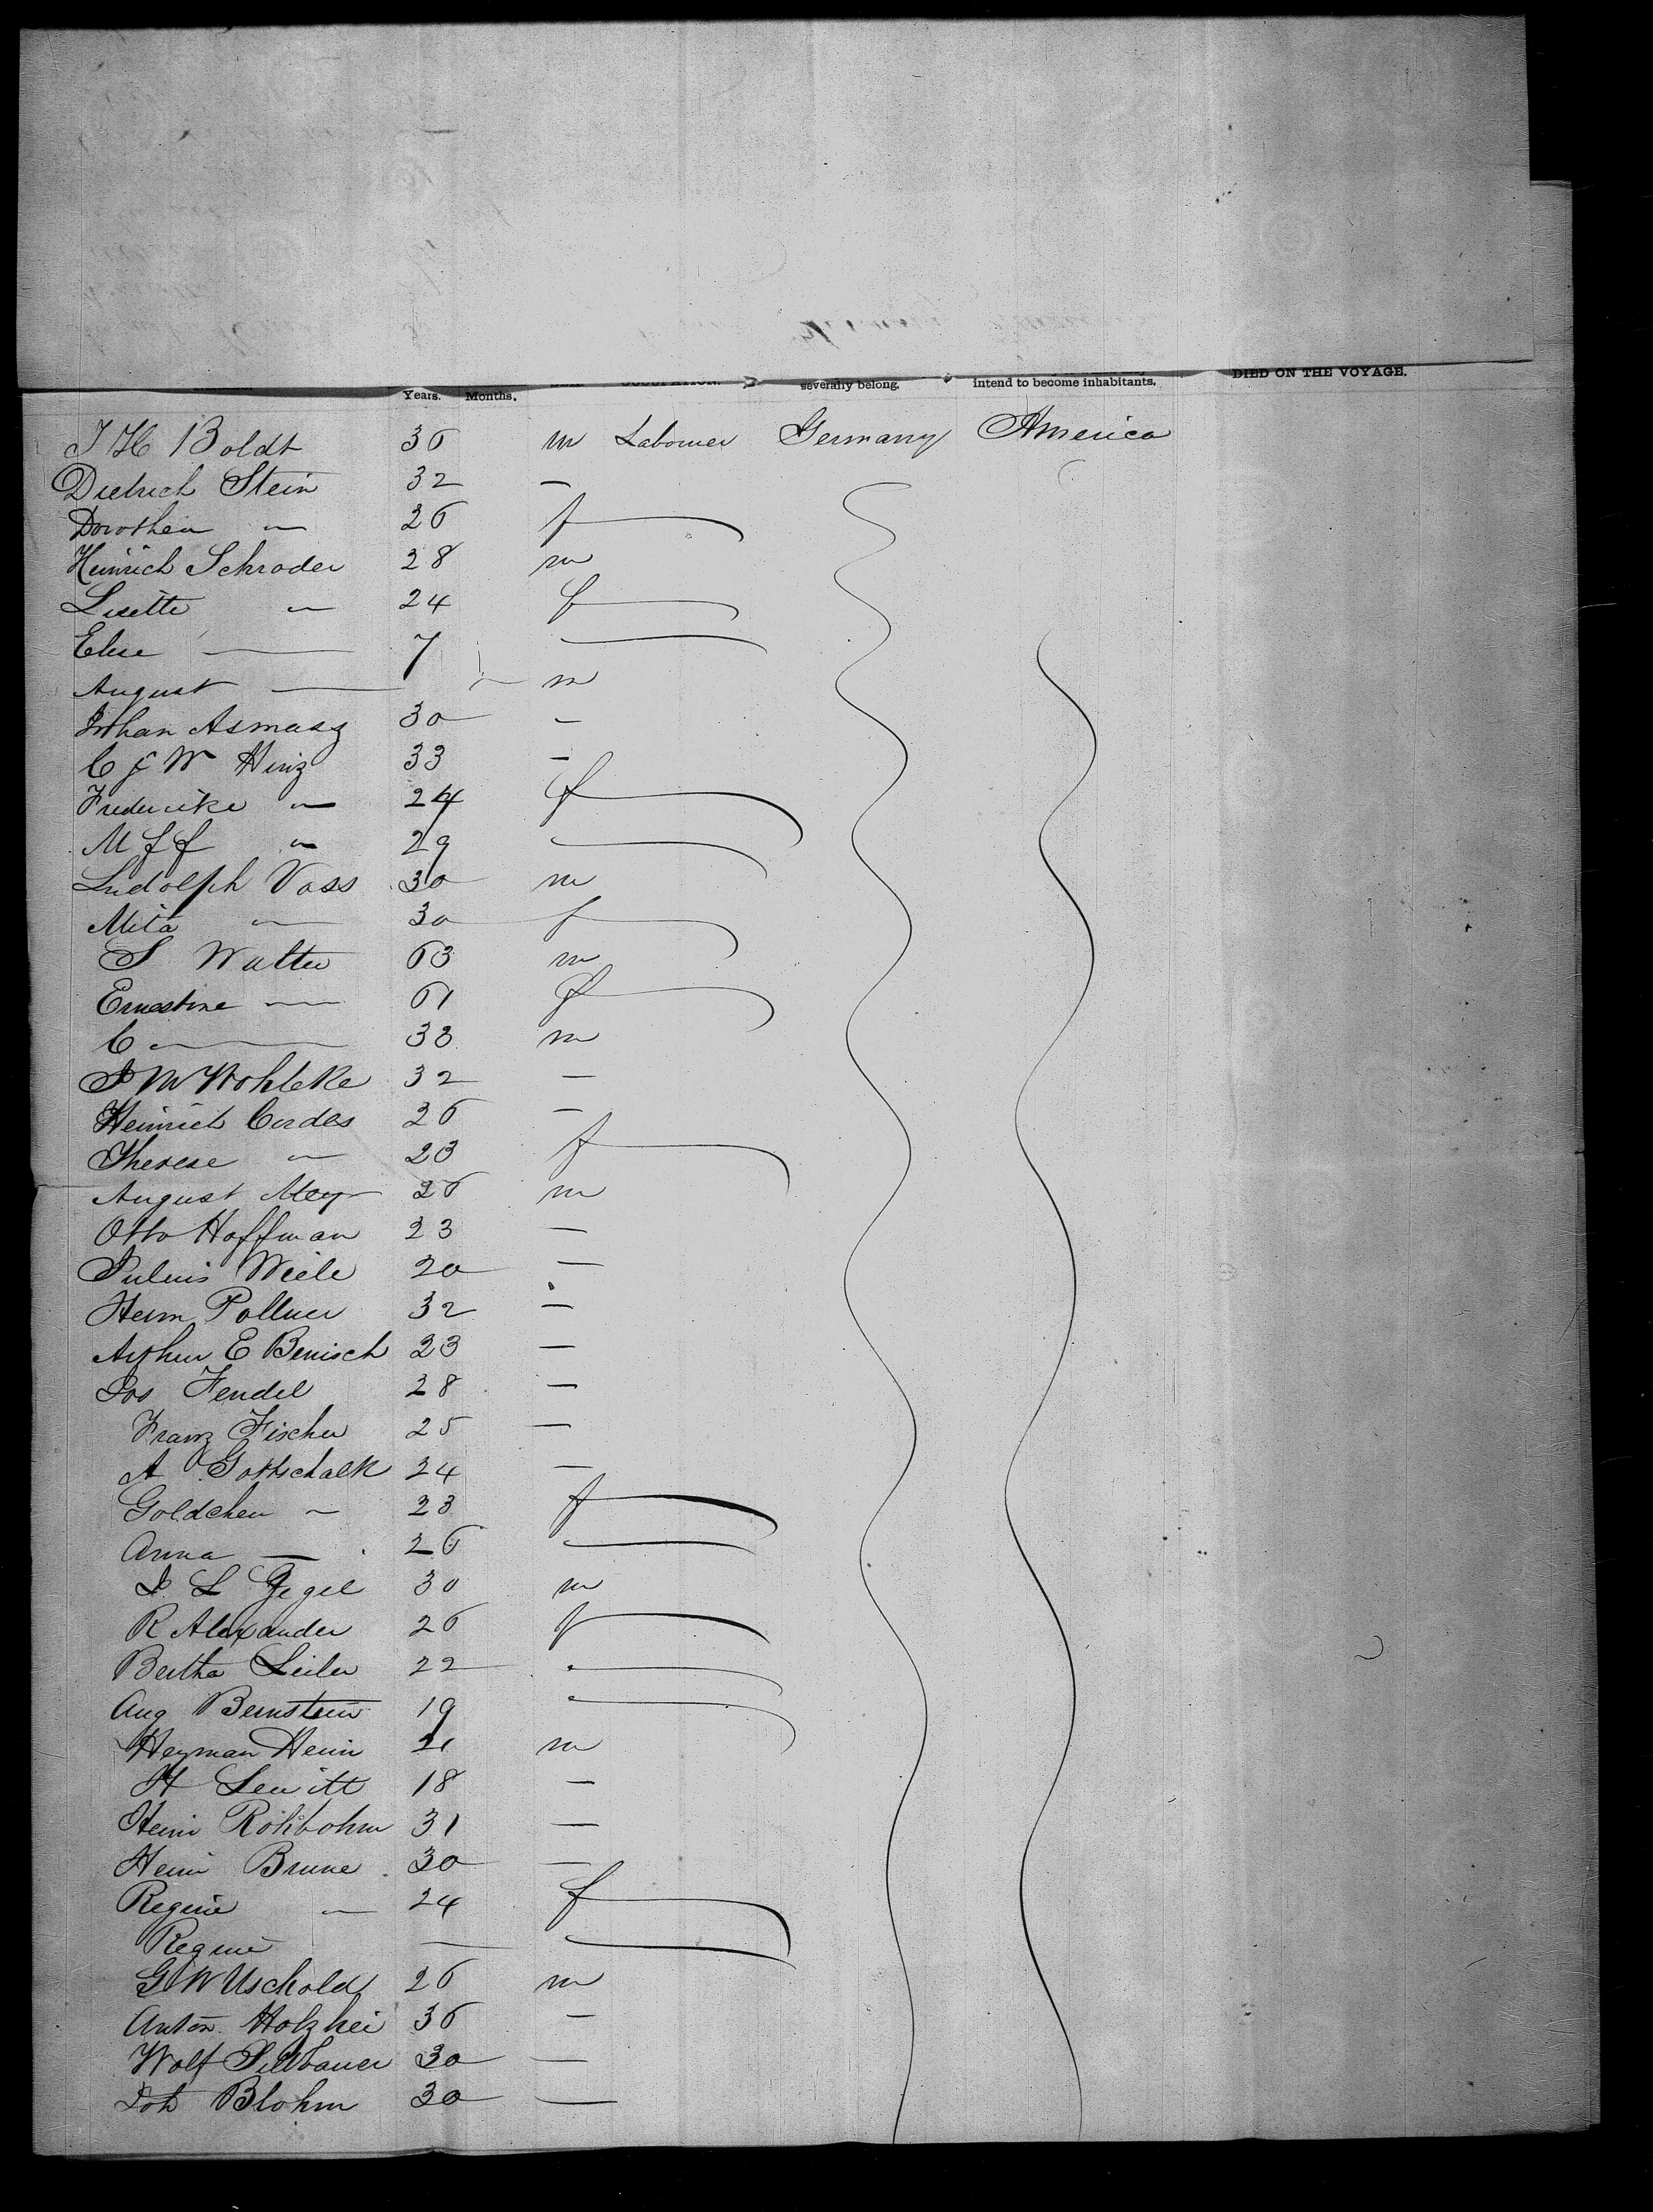 Years. Months. severally belong. intend to become inhabitants. DIED ON THE VOYAGE.
J H Boldt 36 m Labourer Germany America
Dietrich Stein 32 —
Dorothea " 26 f
Heinrich Schroder 28 m
Lisette " 24 f
Elise — 7
August — m
Johan Asmasz 30 —
C J W Hinz 33 —
Fredericke " 24 f
M J f " 29
Ludolph Voss 30 m
Meta " 30 f
S Walter 63 m
Ernestine — 61 f
C — 33 m
J M Wohleke 32 —
Heinrich Cordes 26 —
Therese " 23 f
August Mey 26 m
Otto Hoffman 23 —
Julius Wiele 20 —
Herm Pollner 32 —
Arthur E Benisch 23 —
Jos Fendel 28 —
Franz Fischer 25 —
A Gottschalk 24 —
Goldchen " 23 f
Anna — 26
J L Gegel 30 m
R Alexander 26 f
Bertha Leiler 22
Aug Bernstein 19
Heyman Henri 21 m
H Lewitt 18 —
Heinr Rohbohm 31 —
Heinr Brune 30 —
Regine " 24 f
Regine —
G W Uschold 26 m
Anton Holzhei 36 —
Wolf Sillbauer 30 —
Joh Blohm 30 —